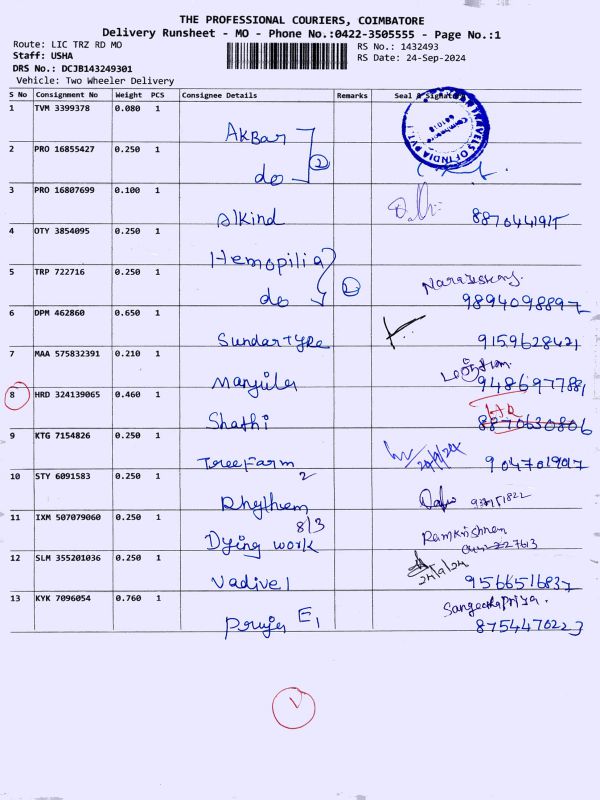 THE PROFESSIONAL COURIERS, COIMBATORE
Delivery Runsheet - MO - Phone No.:0422-3505555 - Page No.:1
Route: LIC TRZ RD MO
Staff: USHA
DRS No.: DCJB143249301
Vehicle: Two Wheeler Delivery
RS No.: 1432493
RS Date: 24-Sep-2024
S No Consignment No Weight PCS Consignee Details Remarks Seal & Signature
1 TVM 3399378 0.080 1 Akbar
2 PRO 16855427 0.250 1 do 2
3 PRO 16807699 0.100 1 Alkind 8870441915
4 OTY 3854095 0.250 1 Hemopilia
5 TRP 722716 0.250 1 do 2 9894098897
6 DPM 462860 0.650 1 Sundar Type 9159628421
7 MAA 575832391 0.210 1 9486977881
8 HRD 324139065 0.460 1 Shathi 8870630806
9 KTG 7154826 0.250 1 Tree Farm 9047019017
10 STY 6091583 0.250 1 Rhythem 2
11 IXM 507079060 0.250 1 Dying work 8/3 Ramkrishnan
12 SLM 355201036 0.250 1 Vadivel 24/9/24 9566516837
13 KYK 7096054 0.760 1 E1 Sangeethapriya. 8754470223